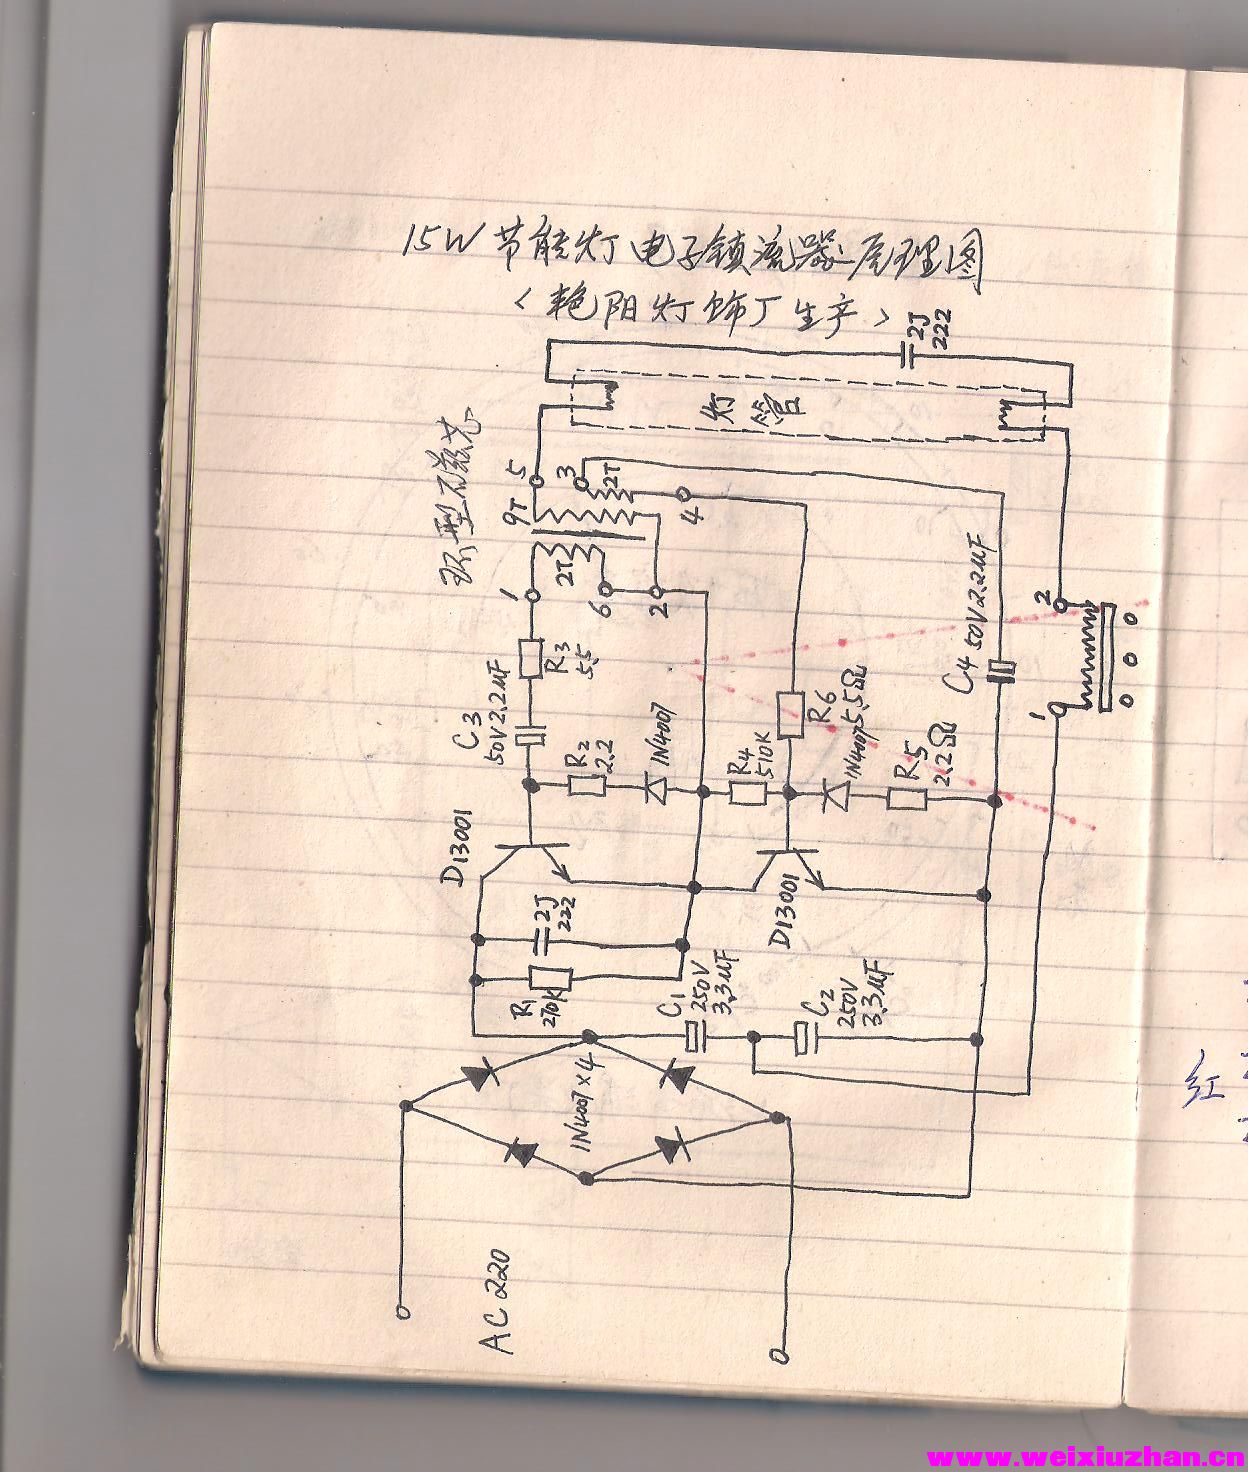 15W节能灯电子镇流器原理图
<艳阳灯饰厂生产>
2J
222
灯管
环型磁芯
5
9T
3
2T
4
1
2T
6
2
R3
5.5
C3
50V2.2μF
R2
2.2
1N4007
R4
510K
R6
5.5Ω
1N4007
R5
2.2Ω
C4 50V2.2μF
2
1
D13001
D13001
2J
222
R1
270K
C1
250V
3.3μF
C2
250V
3.3μF
1N4007×4
AC220
红
www.weixiuzhan.cn